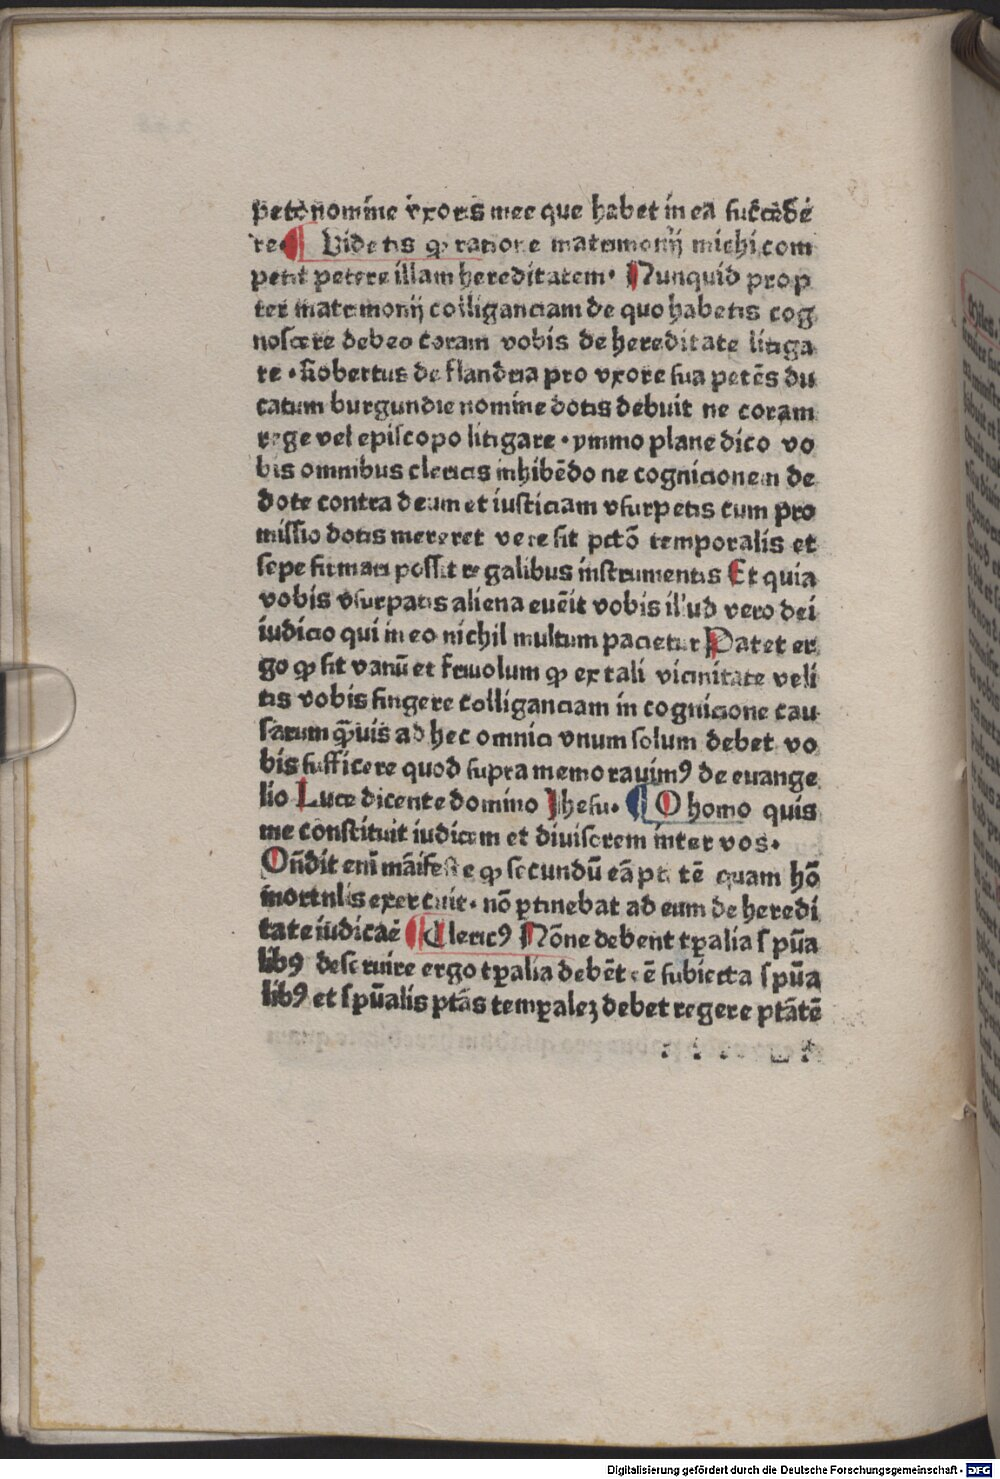 peto nomine vxoris mee que habet in ea succede
re. ¶ Videtis ꝙ ratione matrimonij michi com
petit petere illam hereditatem. Nunquid prop
ter matrimonij colliganciam de quo habetis cog
noscere debeo coram vobis de hereditate litiga
re. Robertus de flandria pro vxore sua petēs du
catum burgundie nomine dotis debuit ne coram
rege vel episcopo litigare. ymmo plane dico vo
bis omnibus clericis inhibēdo ne cognicionem de
dote contra deum et iusticiam vsurpetis cum pro
missio dotis mereret vere sit pctō temporalis et
sepe firmari possit regalibus instrumentis Et quia
vobis vsurpatis aliena euēit vobis illud vero dei
iudicio qui in eo nichil multum pacietur Patet er
go ꝙ sit vanū et friuolum ꝙ ex tali vicinitate veli
tis vobis fingere colliganciam in cognicione cau
sarum q̄uis ad hec omnia vnum solum debet vo
bis sufficere quod supra memorauimꝰ de euange
lio Luce dicente domino Jhesu. ¶ O homo quis
me constituit iudicem et diuisorem inter vos.
Oñdit eni māifeste ꝙ secundū eā ptātē quam hō
mortalis exercuit. nō ꝑtinebat ad eum de heredi
tate iudicaē ¶ Clericꝰ Nōne debent tꝑalia spūa
libꝰ deseruire ergo tꝑalia debēt eē subiecta spūa
libꝰ et spūalis ptās temꝑalez debet regere ptātē
Digitalisierung gefördert durch die Deutsche Forschungsgemeinschaft - DFG